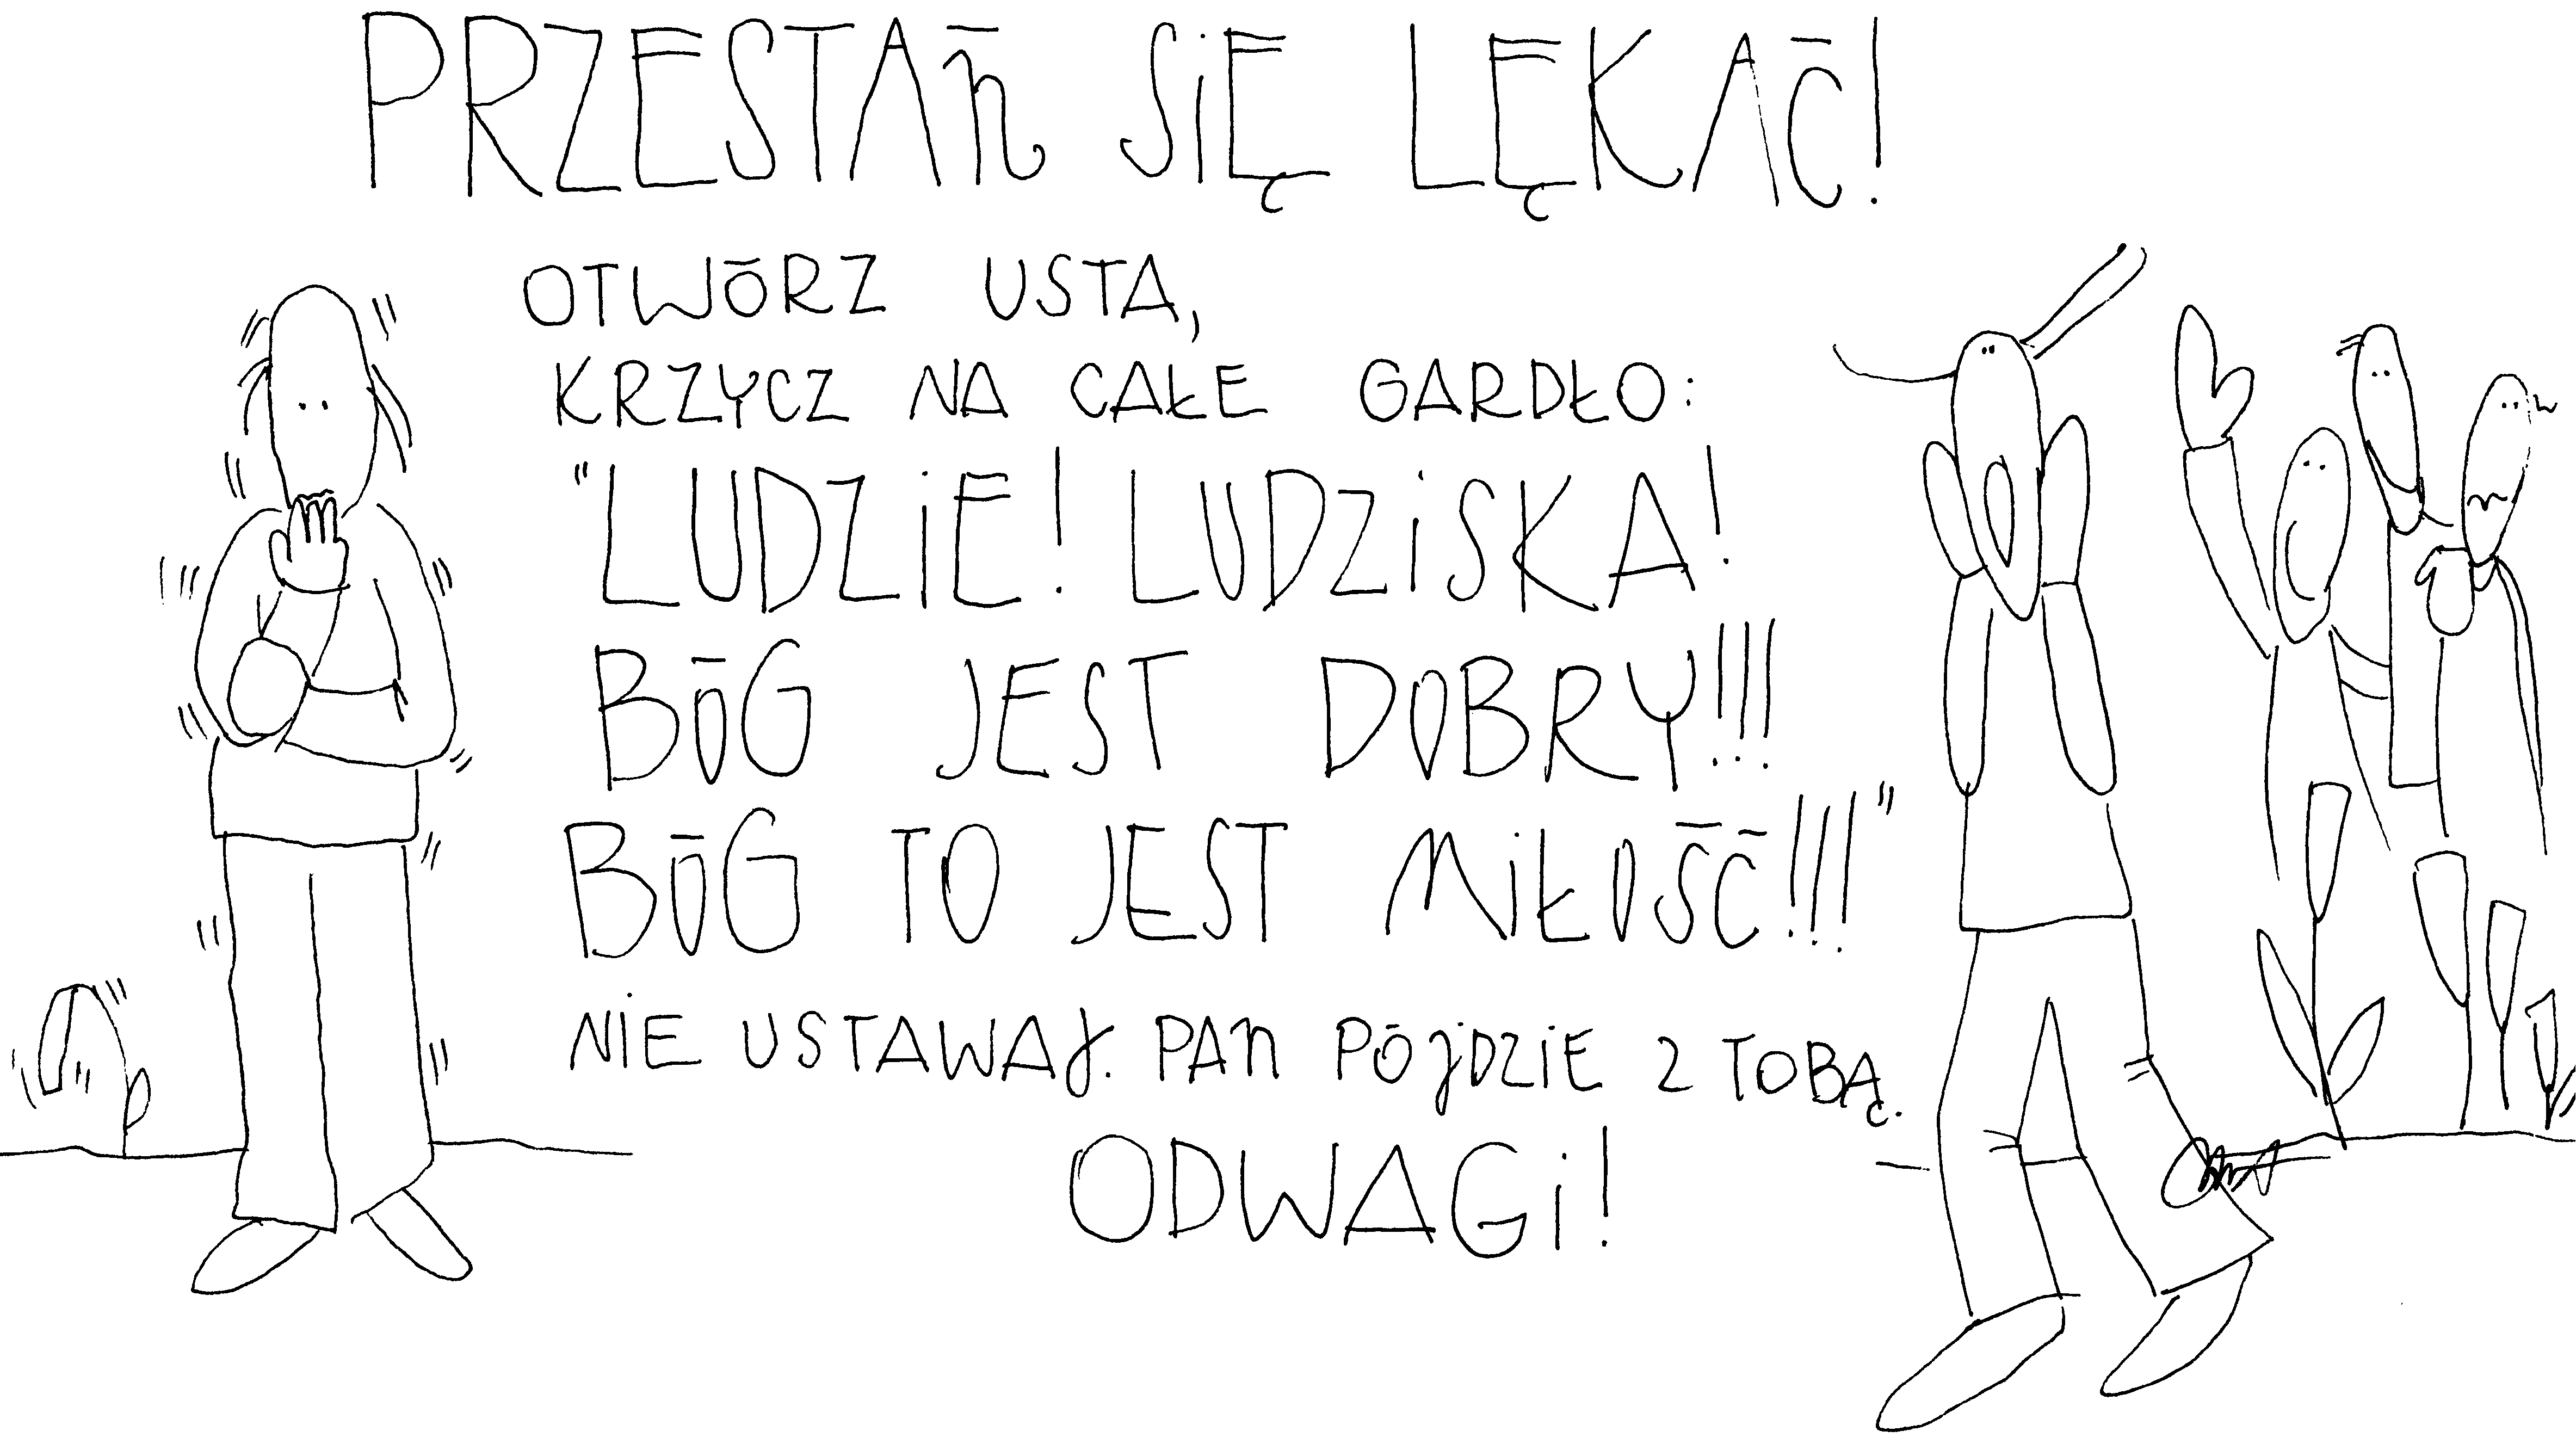 PRZESTAŃ SIĘ LĘKAĆ!
OTWÓRZ USTA,
KRZYCZ NA CAŁE GARDŁO:
"LUDZiE! LUDZiSKA!
BÓG JEST DOBRY!!!
BÓG TO JEST MiŁOŚĆ!!!"
NiE USTAWAJ. PAN PÓJDZiE Z TOBĄ.
ODWAGi!